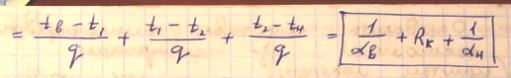 = (t_в − t_1)/q + (t_1 − t_2)/q + (t_2 − t_н)/q = 1/α_в + R_к + 1/α_н